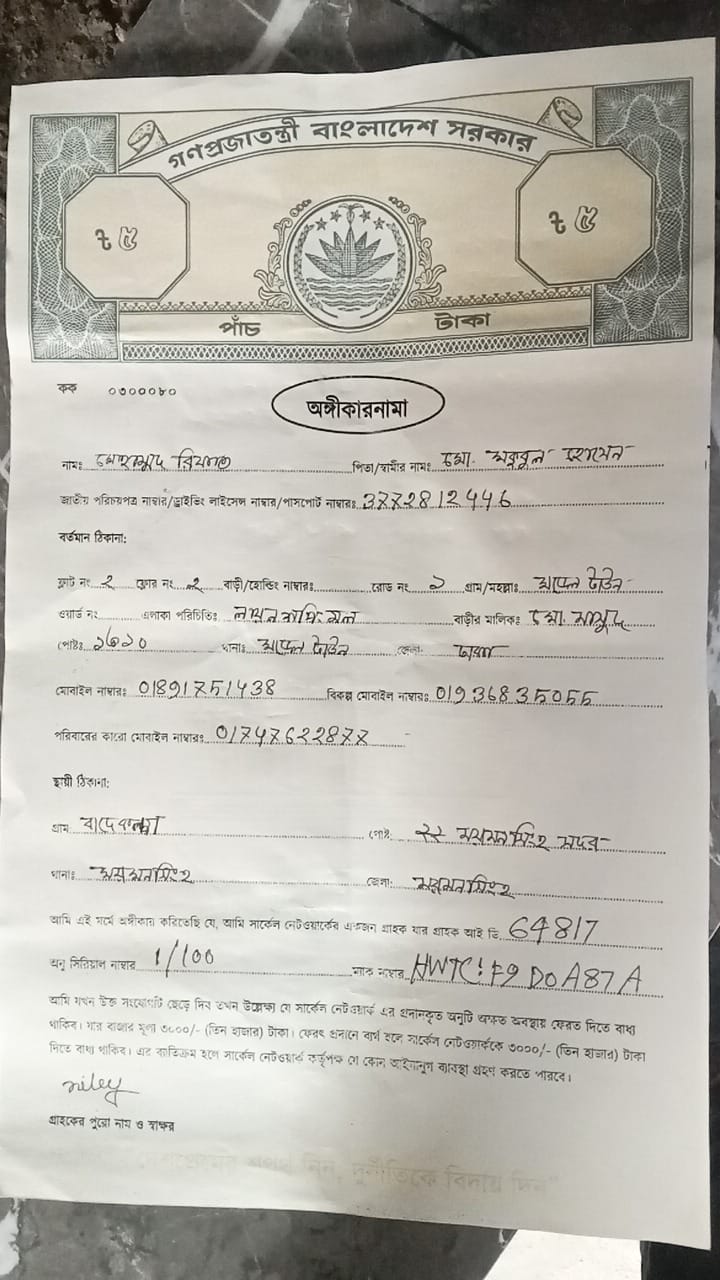 গণপ্রজাতন্ত্রী বাংলাদেশ সরকার
৳ ৫ ৳ ৫
পাঁচ টাকা
কক ০৩০০০৮০
অঙ্গীকারনামা
নামঃ পিতা/স্বামীর নামঃ মো. মকবুল হোসেন
জাতীয় পরিচয়পত্র নাম্বার/ড্রাইভিং লাইসেন্স নাম্বার/পাসপোর্ট নাম্বারঃ 3772812446
বর্তমান ঠিকানা:
ফ্লাট নং ২ ফ্লোর নং ২ বাড়ী/হোল্ডিং নাম্বারঃ রোড নং ১ গ্রাম/মহল্লাঃ মডেল টাউন
ওয়ার্ড নং এলাকা পরিচিতিঃ বাড়ীর মালিকঃ মো. মাসুদ
পোষ্টঃ থানাঃ মডেল টাউন জেলা: ঢাকা
মোবাইল নাম্বারঃ 01891751438 বিকল্প মোবাইল নাম্বারঃ 01936835055
পরিবারের কারো মোবাইল নাম্বারঃ 01747622877
স্থায়ী ঠিকানা:
গ্রাম বাদেকল্পা পোষ্ট: ময়মনসিংহ সদর
থানাঃ ময়মনসিংহ জেলা: ময়মনসিংহ
আমি এই মর্মে অঙ্গীকার করিতেছি যে, আমি সার্কেল নেটওয়ার্কের একজন গ্রাহক যার গ্রাহক আই ডি 64817
অনু সিরিয়াল নাম্বার 1/100 ম্যাক নাম্বার HWTC: F9 D0 A87A
আমি যখন উক্ত সংযোগটি ছেড়ে দিব তখন উল্লেখ্য যে সার্কেল নেটওয়ার্ক এর প্রদানকৃত অনুটি অক্ষত অবস্থায় ফেরত দিতে বাধ্য
থাকিব। যার বাজার মূল্য ৩০০০/- (তিন হাজার) টাকা। ফেরৎ প্রদানে ব্যর্থ হলে সার্কেল নেটওয়ার্ককে ৩০০০/- (তিন হাজার) টাকা
দিতে বাধ্য থাকিব। এর ব্যতিক্রম হলে সার্কেল নেটওয়ার্ক কর্তৃপক্ষ যে কোন আইনানুগ ব্যবস্থা গ্রহণ করতে পারবে।
riley
গ্রাহকের পুরো নাম ও স্বাক্ষর
দেশপ্রেমের শপথ নিন, দুর্নীতিকে বিদায় দিন"